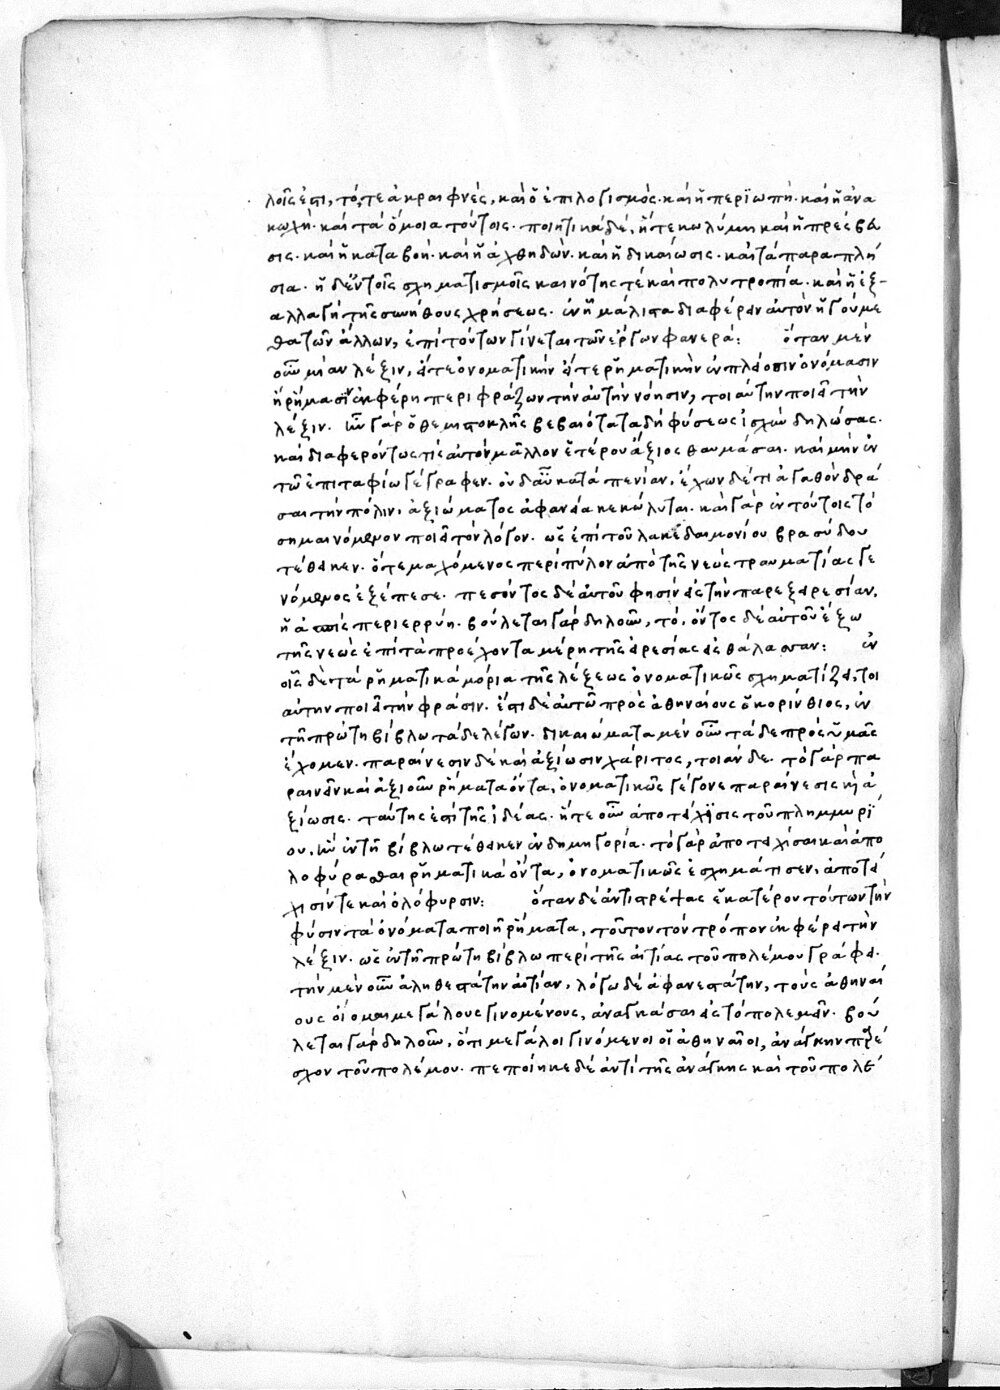 λοῖς ἐστι, τό, τε ἀκραιφνές, καὶ ὁ ἐπιλογισμὸς· καὶ ἡ περϊωπὴ· καὶ ἡ ἀνα
κωχὴ· καὶ τὰ ὅμοια τούτοις· ποιητικὰ δέ, ἥ τε κωλύμη καὶ ἡ πρέσβευ
σις· καὶ ἡ καταβοὴ· καὶ ἡ ἀχθηδὼν· καὶ ἡ δικαίωσις· καὶ τὰ παραπλή
σια· ἡ δὲ ἐν τοῖς σχηματισμοῖς καινότης τὲ καὶ πολυτροπία· καὶ ἡ ἐξ-
αλλαγὴ τῆς συνήθους χρήσεως· ἐν ᾗ μάλιστα διαφέρειν αὐτὸν ἡγούμε
θα τῶν ἄλλων, ἐπὶ τούτων γίνεται τῶν ἔργων φανερά: ὅταν μὲν
οὖν μίαν λέξιν, εἴτε ὀνοματικὴν εἴτε ῥηματικὴν ἐν πλείοσιν ὀνόμασιν
ἢ ῥήμασιν ἐκφέρη περιφράζων τὴν αὐτὴν νόησιν, τοιαύτην ποιεῖ τὴν
λέξιν· ἦν γὰρ ὁ θεμιστοκλῆς βεβαιότατα δὴ φύσεως ἰσχὺν δηλώσας·
καὶ διαφερόντως τι ἐς αὐτὸν μᾶλλον ἑτέρου ἄξιος θαυμάσαι· καὶ μὴν ἐν
τῶ ἐπιταφίω γέγραφεν· οὐδ' αὖ κατὰ πενίαν, ἔχων δέ τι ἀγαθὸν δρᾶ
σαι τὴν πόλιν, ἀξιώματος ἀφανεία κεκώλυται· καὶ γὰρ ἐν τούτοις τὸ
σημαινόμενον ποιεῖ τὸν λόγον· ὡς ἐπὶ τοῦ λακεδαιμονίου βρασύδου
τέθεικεν· ὅτε μαχόμενος περὶ πύλον ἀπὸ τῆς νεὼς τραυματίας γε
νόμενος ἐξέπεσε· πεσόντος δὲ αὐτοῦ φησὶν εἰς τὴν παρεξειρεσίαν,
ἡ ἀσπὶς περιερρύη· βούλεται γὰρ δηλοῦν, τό, ὄντος δὲ αὐτοῦ ἔξω
τῆς νεὼς ἐπὶ τὰ προέχοντα μέρη τῆς εἰρεσίας εἰς θάλασσαν: ἐν
οἷς δὲ τὰ ῥηματικὰ μόρια τῆς λέξεως ὀνοματικῶς σχηματίζει, τοι
αύτην ποιεῖ τὴν φράσιν· ἔστι δὲ αὐτῶ πρὸς ἀθηναίους ὁ κορίνθιος, ἐν
τῆ πρώτη βίβλω τάδε λέγων· δικαιώματα μὲν οὖν τάδε πρὸς ὑμᾶς
ἔχομεν· παραίνεσιν δὲ καὶ ἀξίωσιν χάριτος, τοιάνδε· τὸ γὰρ πα
ραινεῖν καὶ ἀξιοῦν ῥήματα ὄντα, ὀνοματικῶς γέγονε παραίνεσις καὶ ἀ
ξίωσις· ταύτης ἐστὶ τῆς ἰδέας· ἥ τε οὖν ἀποτείχϊσις τοῦ πλημμυρϊ
ου, ἣν ἐν τῆ βίβλω τέθεικεν ἐν δημηγορία· τὸ γὰρ ἀποτειχίσαι καὶ ἀπο
λοφύρασθαι ῥηματικὰ ὄντα, ὀνοματικῶς ἐσχημάτισεν, ἀποτεί
χισίν τε καὶ ὀλόφυρσιν: ὅταν δὲ ἀντιστρέψας ἑκατέρου τούτων τὴν
φύσιν τὰ ὀνόματα ποιῆ ῥήματα, τοῦτον τὸν τρόπον ἐκφέρει τὴν
λέξιν· ὡς ἐν τῆ πρώτη βίβλω περὶ τῆς αἰτίας τοῦ πολέμου γράφει·
τὴν μὲν οὖν ἀληθεστάτην αἰτίαν, λόγω δὲ ἀφανεστάτην, τοὺς ἀθηναί
ους οἴομαι μεγάλους γινομένους, ἀναγκάσαι εἰς τὸ πολεμεῖν· βού
λεται γὰρ δηλοῦν, ὅτι μεγάλοι γινόμενοι οἱ ἀθηναῖοι, ἀνάγκην παρέ
σχον τοῦ πολέμου· πεποίηκε δὲ ἀντὶ τῆς ἀνάγκης καὶ τοῦ πολέ